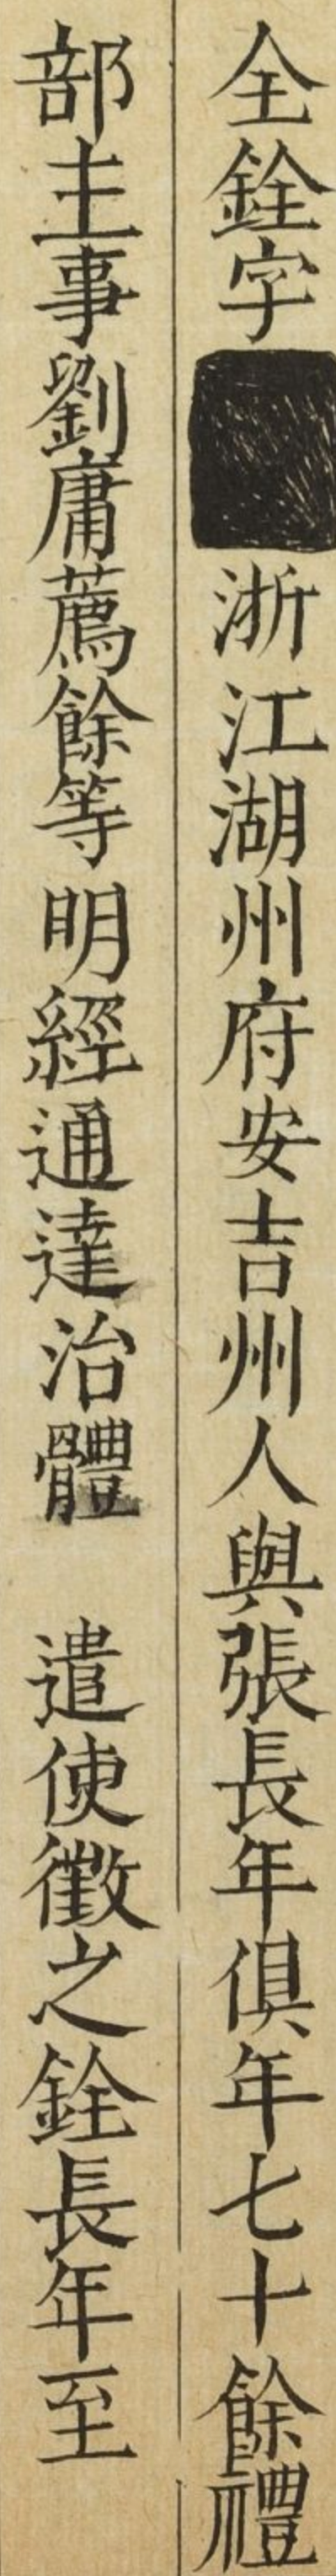 全銓字浙江湖州府安吉州人與張長年俱年七十餘禮
部主事劉庸薦餘等明經通達治體遣使徵之銓長年至